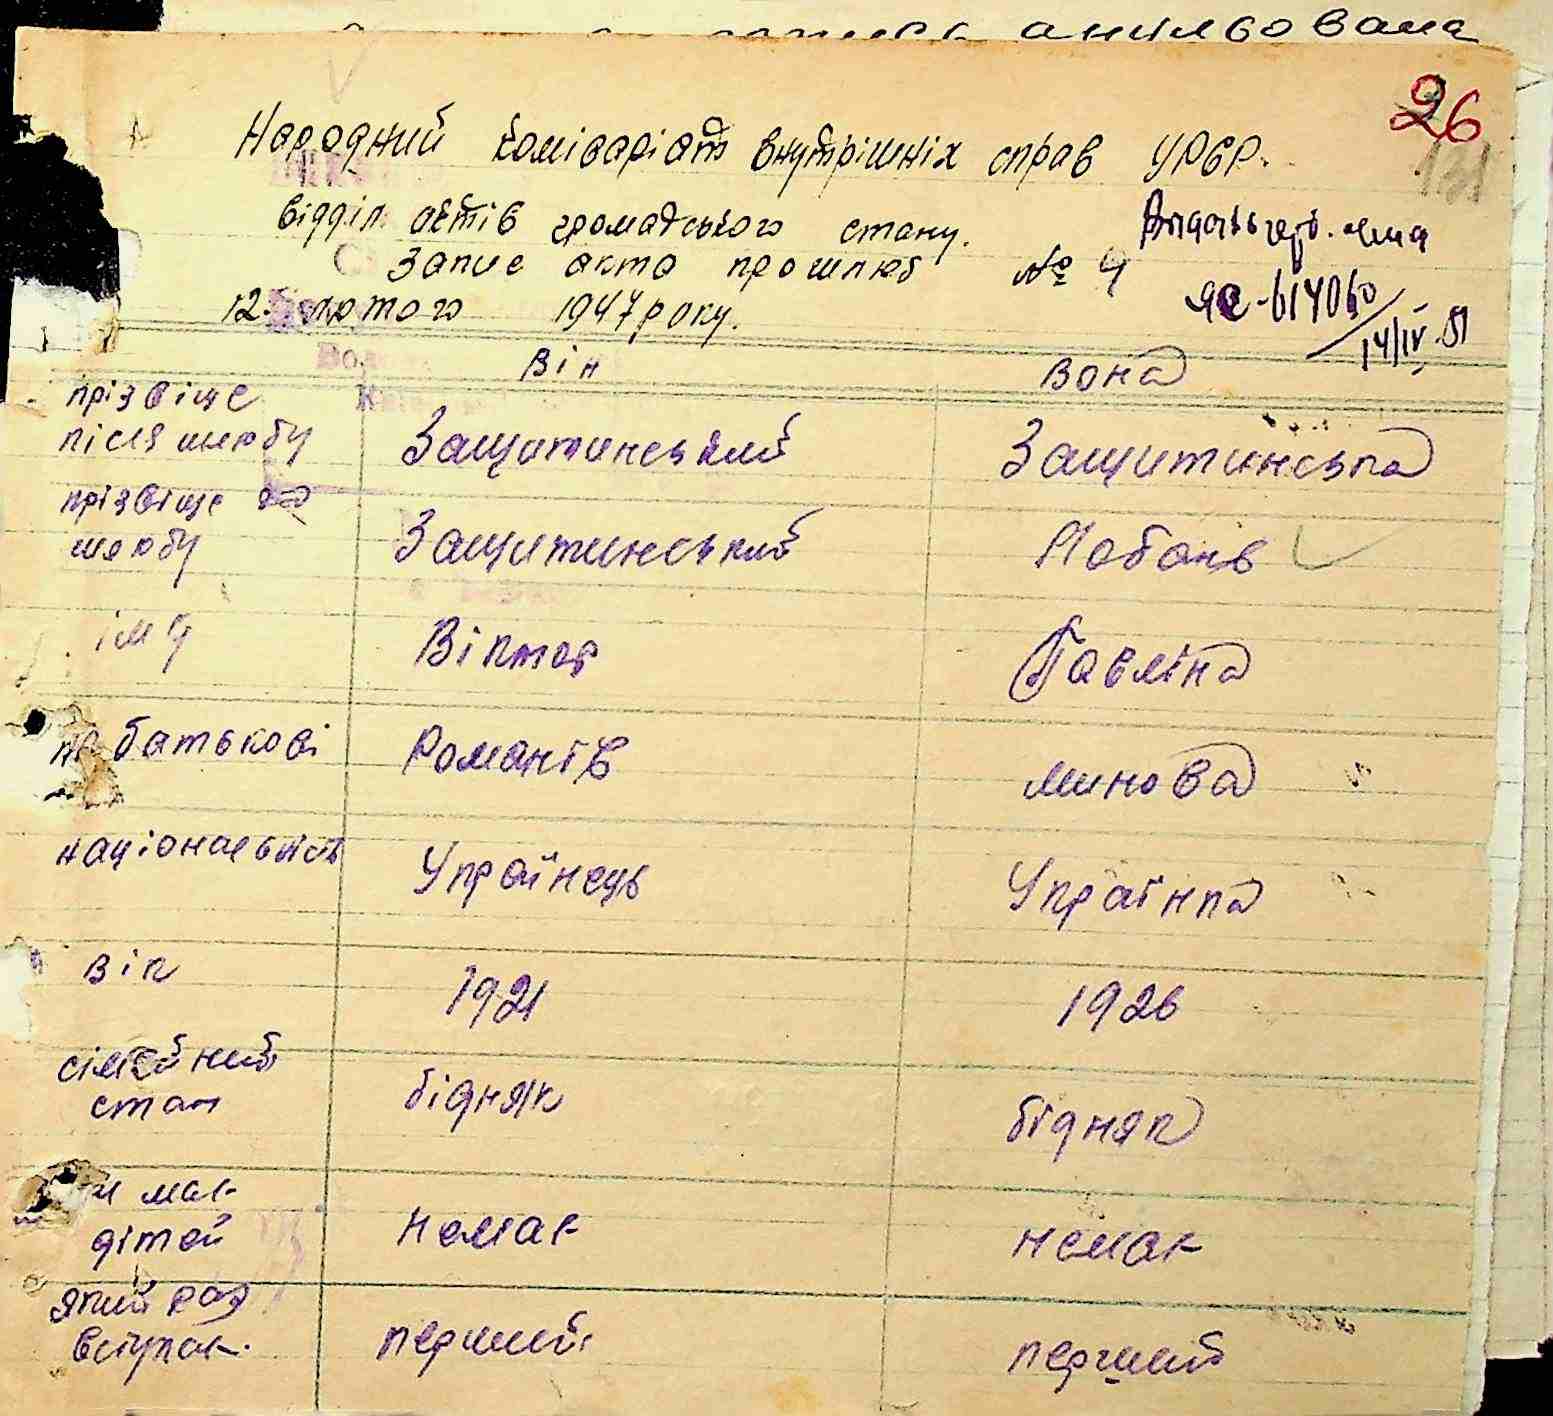 анульована
26
Народний Комісаріат внутрішніх справ УРСР.
Відділ актів громадського стану.
Запис акта про шлюб № 4
12. лютого 1947 року.
ЯЄ-614060
14/IV.51
Він Вона
прізвіще
після шлюбу Защитинський Защитинська
прізвіще до
шлюбу Защитинський
імя Віктор Павліна
по батькові Романів Минова
національність Українець Українка
вік 1921 1926
сімейний
стан бідняк бідняк
чи має
дітей немає немає
який раз
вступає. перший перший